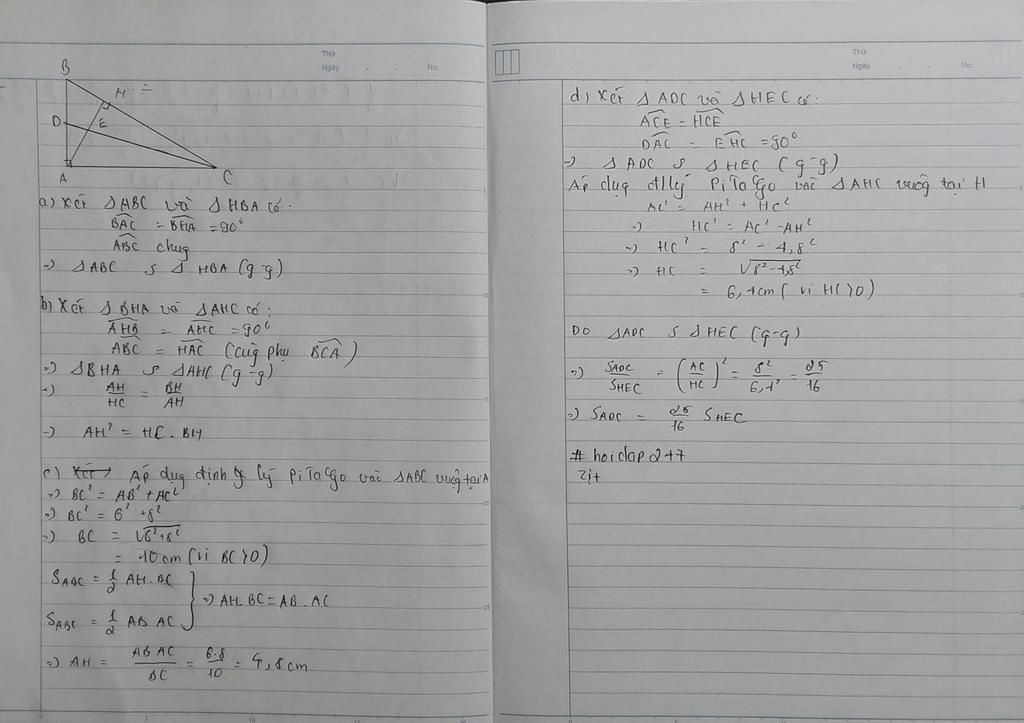 Thứ
Ngày . . No.
B
H
D
E
A
C
a) Xét Δ ABC và Δ HBA có:
BAC = BHA = 90°
ABC chug
=> ΔABC S Δ HBA (g-g)
b) Xét Δ BHA và ΔAHC có:
AHB = AHC = 90°
ABC = HAC (cùg phụ BCA)
=> ΔBHA S ΔAHC (g-g)
=> AH/HC = BH/AH
=> AH² = HC. BH
c) Áp dụg định lý PiTaGo vào ΔABC vuôg tại A
=> BC² = AB² + AC²
=> BC² = 6² + 8²
=> BC = √6²+8²
= 10 cm (vì BC > 0)
S_ABC = 1/2 AH. BC
=> AH. BC = AB. AC
S_ABC = 1/2 AB AC
=> AH = AB AC/BC = 6.8/10 = 4,8 cm
Thứ
Ngày . . No.
d) Xét Δ ADC và Δ HEC có:
ACE = HCE
DAC = EHC = 90°
=> Δ ADC S Δ HEC (g-g)
Áp dụg đ/lý PiTaGo vào ΔAHC vuôg tại H
AC² = AH² + HC²
=> HC² = AC² - AH²
=> HC² = 8² - 4,8²
=> HC = √8²-4,8²
= 6,4 cm (vì HC > 0)
Do ΔADC S ΔHEC (g-g)
=> S_ADC/S_HEC = (AC/HC)² = 8²/6,4² = 25/16
=> S_ADC = 25/16 S_HEC
# hoidap247